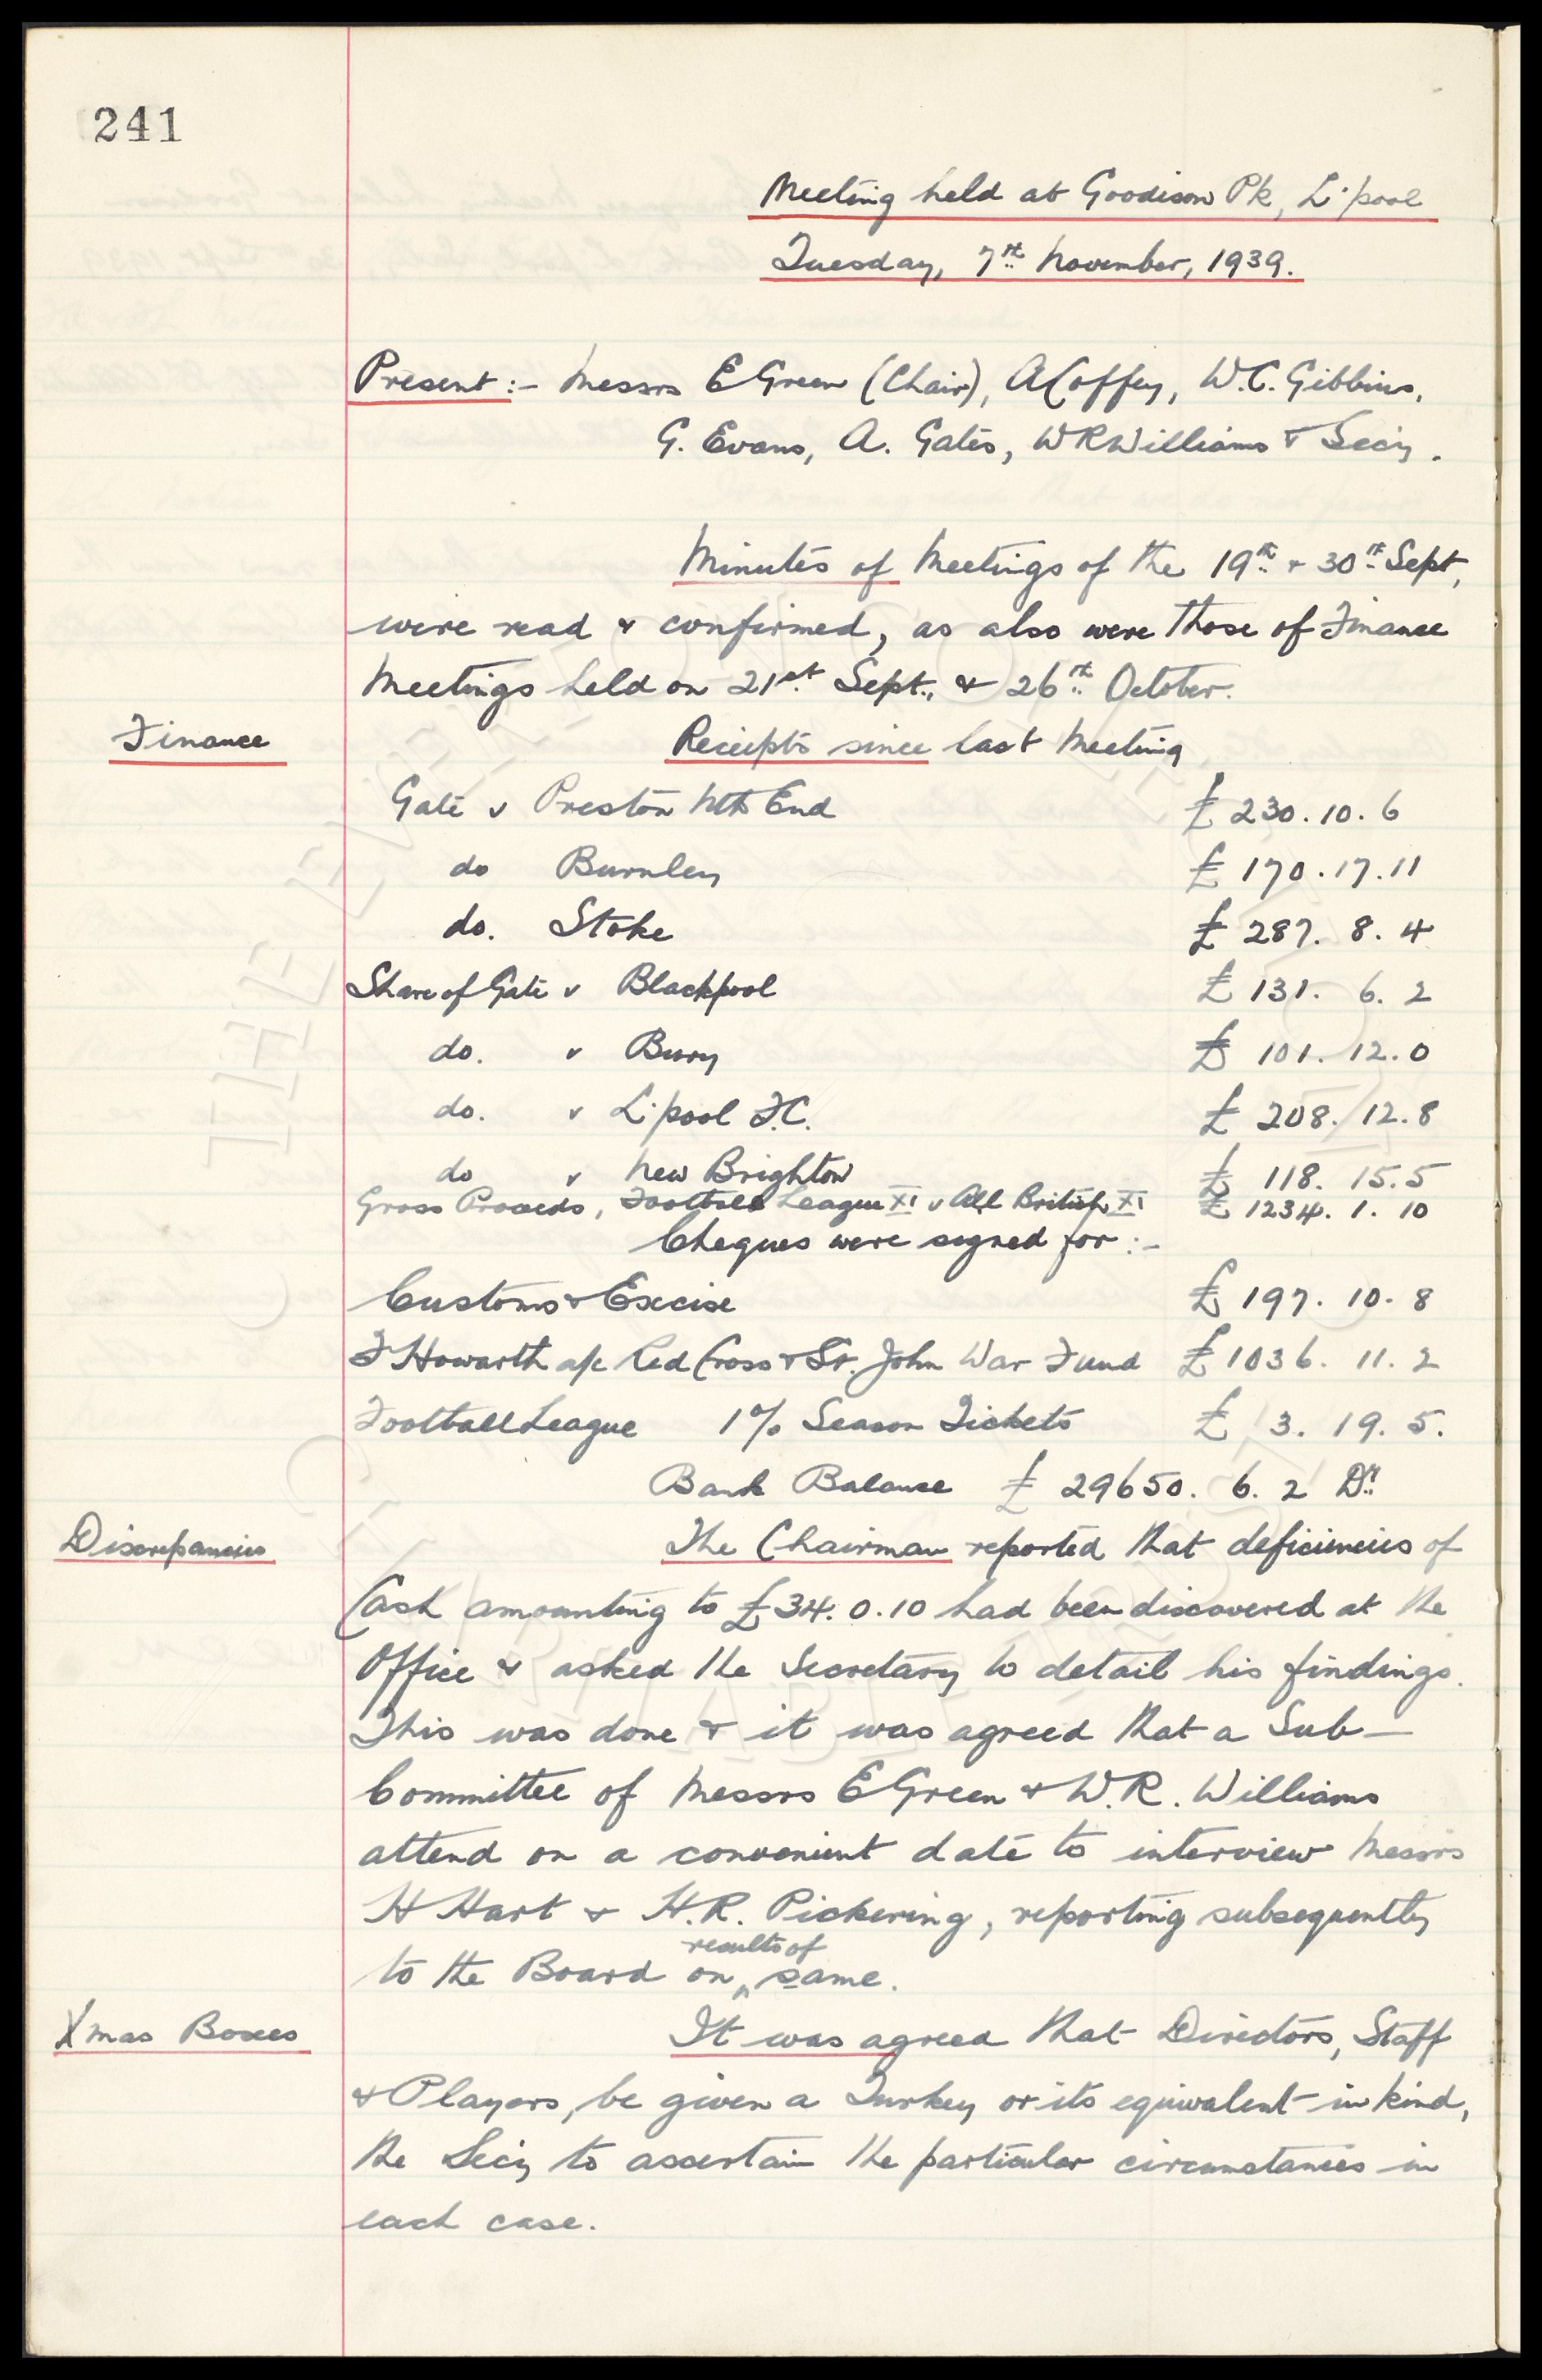 241
Meeting held at Goodison Pk, L'pool
Tuesday, 7th November, 1939.
Present :- Messrs E Green (Chair), A Coffey, W.C. Gibbins,
G. Evans, A. Gates, W R Williams & Sec'y.
Minutes of Meetings of the 19th & 30th Sept,
were read & confirmed, as also were those of Finance
Meetings held on 21st Sept., & 26th October.
Finance
Receipts since last Meeting
Gate v Preston Nth End £ 230. 10. 6
do Burnley £ 170. 17. 11
do. Stoke £ 287. 8. 4
Share of Gate v Blackpool £ 131. 6. 2
do. v Bury £ 101. 12. 0
do. v L'pool F.C. £ 208. 12. 8
do v New Brighton £ 118. 15. 5
Gross Proceeds, Football League XI v All British XI £ 1234. 1. 10
Cheques were signed for :-
Customs & Excise £ 197. 10. 8
F Howarth a/c Red Cross & St. John War Fund £ 1036. 11. 2
Football League 1% Season Tickets £ 3. 19. 5.
Bank Balance £ 29650. 6. 2 Dr.
Discrepancies
The Chairman reported that deficiencies of
Cash amounting to £34. 0. 10 had been discovered at the
Office & asked the Secretary to detail his findings.
This was done & it was agreed that a Sub-
Committee of Messrs E Green & W.R. Williams
attend on a convenient date to interview Messrs
H Hart & H.R. Pickering, reporting subsequently
to the Board on results of same.
Xmas Boxes
It was agreed that Directors, Staff
& Players, be given a Turkey or its equivalent in kind,
the Sec'y to ascertain the particular circumstances in
each case.